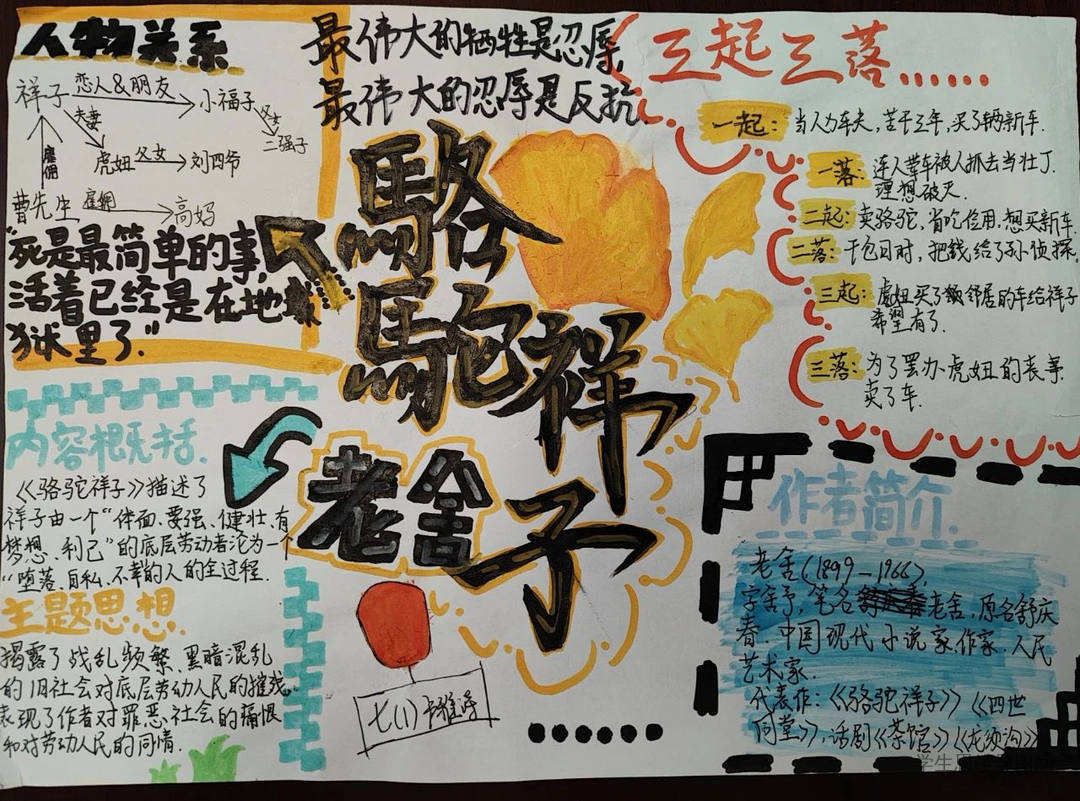 人物关系
祥子 恋人&朋友 小福子
夫妻 父女
二强子
雇佣 虎妞 父女 刘四爷
曹先生 雇佣 高妈
"死是最简单的事,
活着已经是在地
狱里了."
最伟大的牺牲是忍辱,
最伟大的忍辱是反抗.
駱
駝祥
子
老舍
三起三落......
一起: 当人力车夫,苦干三年,买了辆新车.
一落: 连人带车被人抓去当壮丁.
理想破灭.
二起: 卖骆驼,省吃俭用.想买新车.
二落: 干包月时,把钱给了孙侦探.
三起: 虎妞买了邻居的车给祥子
希望有了.
三落: 为了置办虎妞的丧事.
卖了车.
内容概括.
《骆驼祥子》描述了
祥子由一个"体面、要强、健壮、有
梦想、利己"的底层劳动者沦为一个
"堕落、自私、不幸的人的全过程.
主题思想.
揭露了战乱频繁、黑暗混乱
的旧社会对底层劳动人民的摧残.
表现了作者对罪恶社会的痛恨
和对劳动人民的同情.
七(1)
作者简介.
老舍(1899—1966),
字舍予,笔名老舍,原名舒庆
春 中国现代小说家.作家.人民
艺术家.
代表作:《骆驼祥子》《四世
同堂》,话剧《茶馆》《龙须沟》